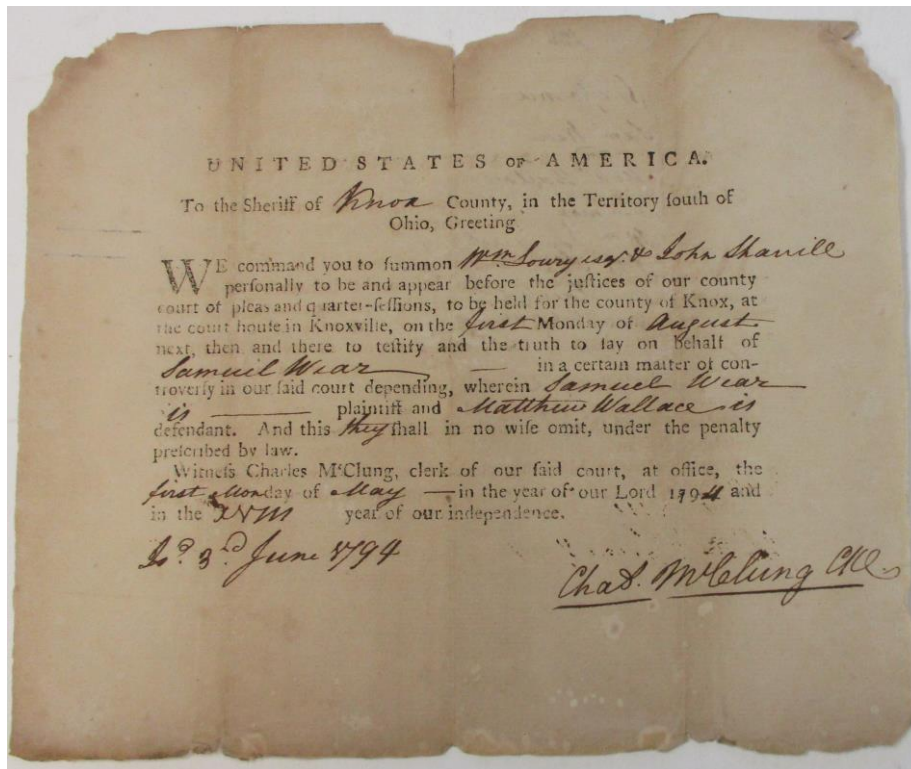 UNITED STATES OF AMERICA.
To the Sheriff of Knox County, in the Territory ſouth of
Ohio, Greeting
WE command you to ſummon Wm Lowry esqr. & John Sharill
perſonally to be and appear before the juſtices of our county
court of pleas and quarter-ſeſſions, to be held for the county of Knox, at
the court houſe in Knoxville, on the first Monday of August
next, then and there to teſtify and the truth to ſay on behalf of
Samuel Wear — in a certain matter of con-
troverſy in our ſaid court depending, wherein Samuel Wear
is — plaintiff and Matthew Wallace is
defendant. And this they ſhall in no wiſe omit, under the penalty
preſcribed by law.
Witneſs Charles M'Clung, clerk of our ſaid court, at office, the
first Monday of May — in the year of our Lord 1794 and
in the XVIII year of our independence.
Isd. 3d. June 1794
Chas. McClung